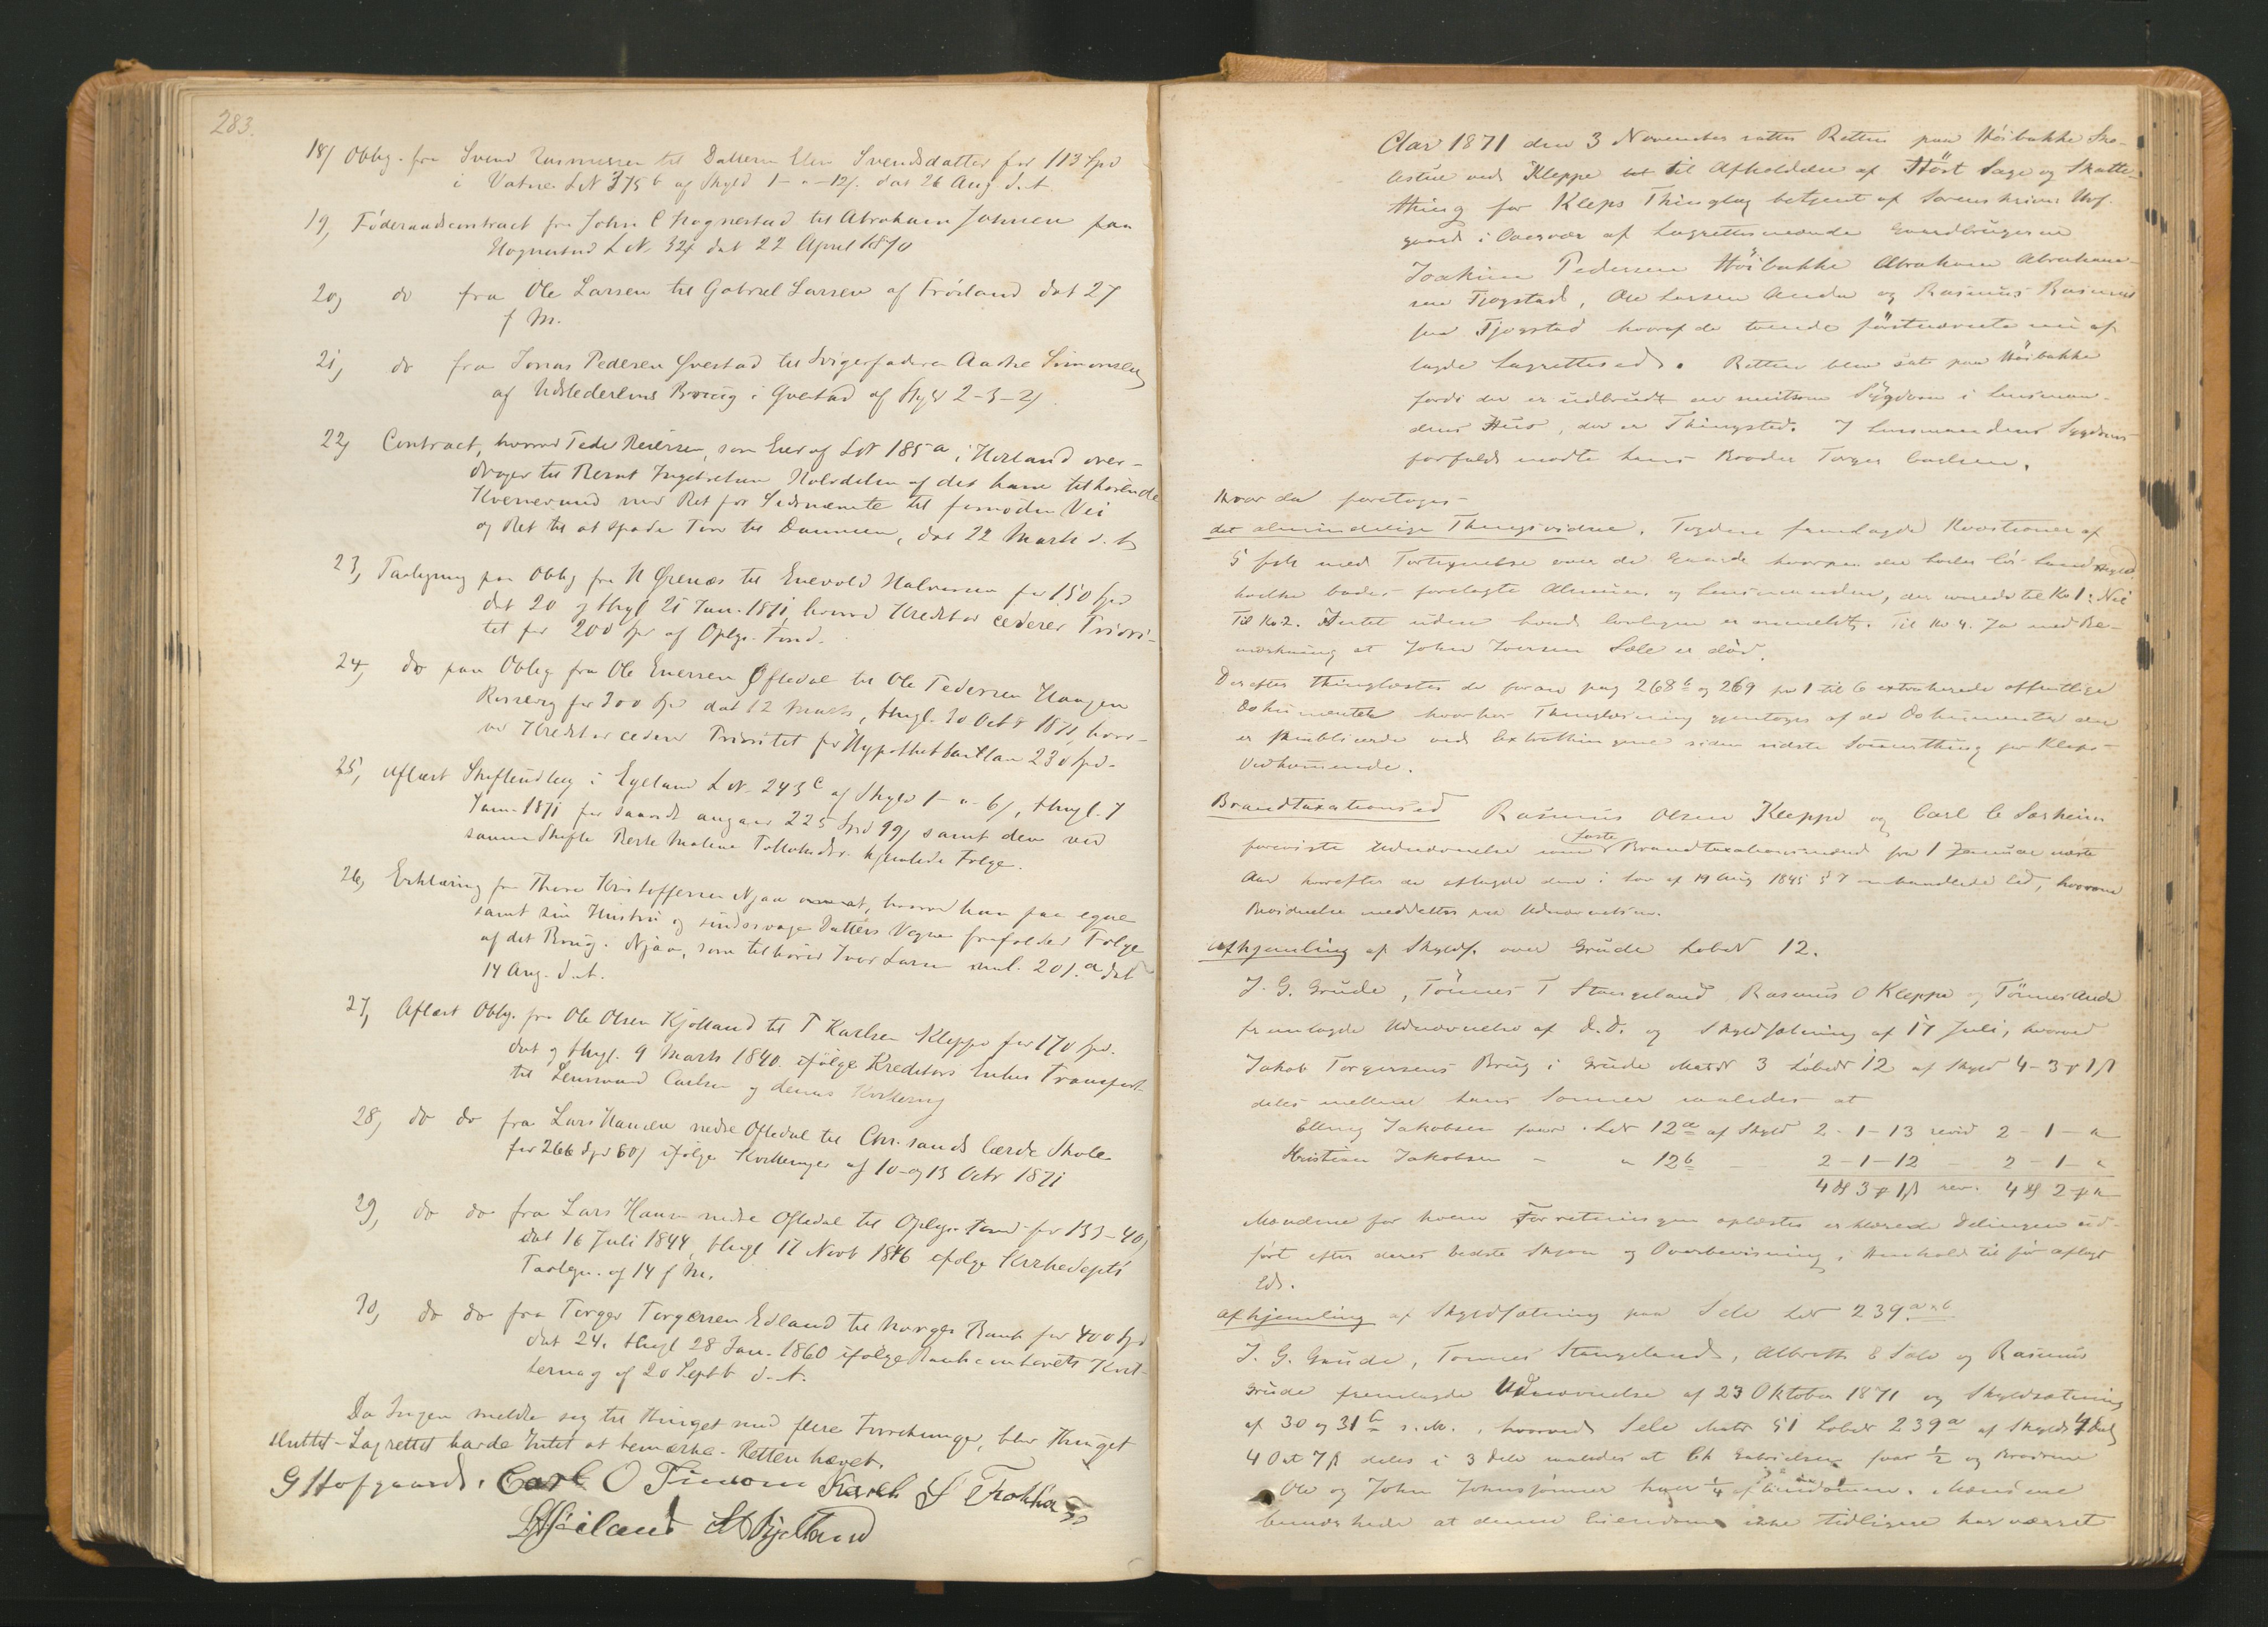 283.
18) Oblig. fra Svend Rasmussen til Datteren Elen Svendsdatter for 113 Spd
i Vatne LN 375 b af Skyld 1 - " - 12/. dat 26 Aug d. A.
19, Føderaadscontract fra John C Hognestad til Abraham Johnsen paa
Hognestad L N. 324 dat 22 April 1870
20, do fra Ole Larsen til Gabriel Larsen af Frøiland dat 27
f M.
21, do fra Jonas Pedersen Qvestad til Svigerfaderen Aadne Simonsen
af Udstederens Brug i Qvestad af Skyld 2-3-2/
22, Contract, hvorved Peder Reiersen, som Eier af LN 185 a i Horland over-
drager til Bernt Ingebretsen Halvdelen af det ham tilhørende
Kværnevand med Ret for Sidstnævnte til fornøden Vei
og Ret til at spade Torv til Dammen, dat 22 Marts d. A.
23, Paategning paa Oblig fra N Ørenæs til Enevold Halvorsen for 150 Spd
dat 20 og thgl 21 Jan. 1871, hvorved Kreditor cederer Priori-
tet for 200 Spd af Oplgs. Fond.
24, do paa Oblig fra Ole Enersen Øftedal til Ole Pedersen Haugen
for 300 Spd dat 12 Marts, thgl. 30 Octr 1871, hvor-
ved Kreditor cederer Prioritet for Hypothekbanklaan 230 Spd.
25, Aflæst Skifteudlæg i Egeland L N. 243 c af Skyld 1 - " - 6/, thgl. 7
Jan. 1871 for saavidt angaar 225 Spd 99/ samt den ved
samme Skifte Berte Malene Tollaksdtr. hjemlede Folge.
26, Erklæring fra Thore Kristoffersen Njaa hvorved han paa egne
samt sin Hustru og sindssvage Datters Vegne frafalder Folge
af det Brug i Njaa, som tilhører Iver Larsen 201. a dat
14 Aug. d. A.
27, Aflæst Oblig. fra Ole Olsen Kjølland til T Karlsen Kleppe for 170 Spd.
dat og thgl. 9 Marts 1840 ifølge Kreditors Enkes Transport
til Lensmand Carlsen og dennes Kvittering
28, do do fra Lars Hansen nedre Øftedal til Chr. sands lærde Skole
for 266 Spd 60/ ifølge Kvitteringer af 10 og 13 Octr 1871
29, do do fra Lars Hansen nedre Øftedal til Oplgs. Fond for 133-40/
dat 16 Juli 1844, thgl 17 Novb 1846 ifølge Kirkedepts
Paategn. af 14 f M.
30, do do fra Torger Torgersen Edland til Norges Bank for 400 Spd
dat 24, thgl 28 Jan. 1860 ifølge Bankcontorets Kvit-
tering af 20 Septb d. A.
Da Ingen meldte sig til Thinget med flere Forretninger, blev Thinget
sluttet - Lagrettet havde Intet at bemærke. Retten hævet.
G Hofgaard. Carl O
Aar 1871 den 3 November sattes Retten paa Höibakke Sko-
lestue ved Kleppe til Afholdelse af Höst Sage og Skatte-
thing for Kleps Thinglag betjent af Sorenskriver Hof-
gaard i Overvær af Lagrettesmændene Gaardbrugerne
Joakim Pedersen Höibakke Abraham Abraham-
sen Tjogstad, Ole Larsen Anda og Rasmus Rasmus
sen Tjogstad hvoraf de tvende förstnævnte nu af
lagde Lagrettesed. Retten blev sat paa Höibakke
fordi der er udbrudt en smitsom Sygdom i Lensman-
dens Huus, der er Thingsted. I Lensmandens Sygdoms
forfald mødte hans Broder Torger Carlsen.
Hvor da foretoges
det almindelige Thingsvidne. Fogden fremlagde Kvæstioner af
5 folk med Fortegnelse over de Gaarde hvorpaa der hviler lös Landskyld
hvilke bades forelagte Almuen og Lensmanden, der svarede til No 1: Nei
Til No 2. Intet uden hvad lovligen er anmeldt. Til No 4. Ja med Be-
mærkning at John Iversen Sele er död.
Derefter thinglæstes de foran pag 268 b og 269 fra 1 til 6 extraherede offentlige
Dokumenter hvorhos Thinglæsning gjentoges af de Dokumenter der
er publicerede ved Extrathingene siden sidste Sommerthing for Kleps
Vedkommende.
Brandtaxationsed Rasmus Olsen Kleppe og Carl C Særheim
faste
foreviste Udnævnelse som Brandtaxationsmænd fra 1 Januar næste
Aar hvorefter de aflagde den i Lov af 19 Aug 1845 § 7 Ed, hvorom
Bevidnelse meddeltes paa Udnævnelsen.
Afhjemling af Skyldf. over Grude Löbeno 12.
J. G. Grude, Tönnes T Stangeland Rasmus O Kleppe og Tönnes Anda
fremlagde Udnævnelse af d. d. og Skyldsætning af 17 Juli, hvorved
Jakob Torgersens Brug i Grude Matr 3 Löbeno 12 af Skyld 4-3-1 /3
deles mellem hans Sönner saaledes at
Elling Jakobsen faar Lno 12 a af Skyld 2-1-13 revid 2-1- "
Kristian Jakobsen - " 12 b 2-1-12 - 2-1- "
4 3 1 rev. 4 2 "
Mændene for hvem Forretningen oplæstes erklærede Delingen ud-
fört efter deres bedste Skjön og Overbevisning, i Henhold til för aflagt
Ed.
Afhjemling af Skyldsætning paa Sele Lno 239 a & b
J. G. Grude, Tönnes Stangeland, Albreth E Sele og Rasmus
Grude fremlagde Udnævnelse af 23 Oktober 1871 og Skyldsætning
af 30 og 31 s. M., hvorved Sele Matr 51 Löbeno 239 a af Skyld 4
4 Ort 7 deles i 3 Dele saaledes at Gabrielsen faar 1/2 og Brödrene
Ole og John Johnsönner hver 1/4 af Eiendommen. Mændene
bemærkede at denne Eiendom ikke tidligere har været